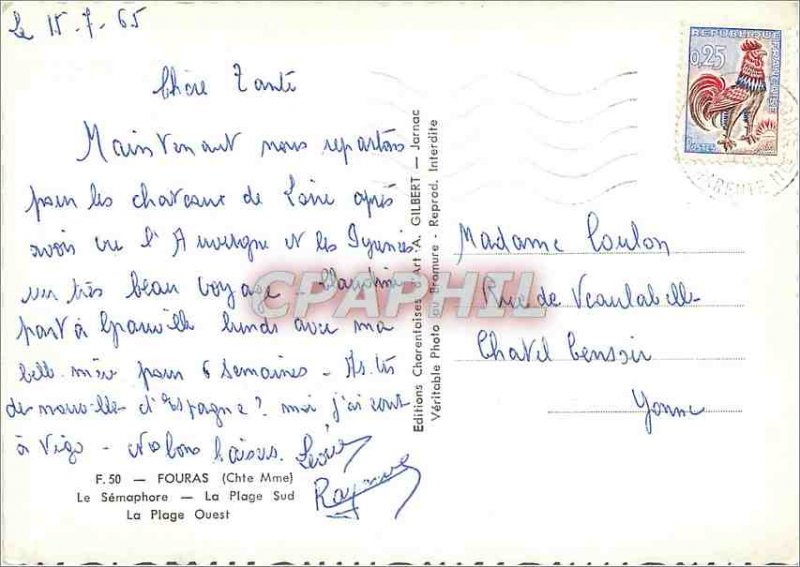 le 15-7-65
Chère Tante
Maintenant nous repartons
pour les chateaux de Loire après
avoir vu l'Auvergne et les Pyrenées
un très beau voyage - Claudine
part à Granville lundi avec ma
belle-mère pour 6 semaines - As-tu
de nouvelles d'Espagne? moi j'ai écrit
à Vigo - Nos bons baisers.
Raymond
F. 50 — FOURAS (Chte Mme)
Le Sémaphore — La Plage Sud
La Plage Ouest
Editions Charentaises d'Art A. GILBERT — Jarnac
Véritable Photo au Bromure - Reprod. Interdite
REPUBLIQUE FRANÇAISE
0,25
POSTES
CHARENTE M
Madame Coulon
Rue de Vaulabelle
Chatel Censoir
Yonne
CPAPHIL